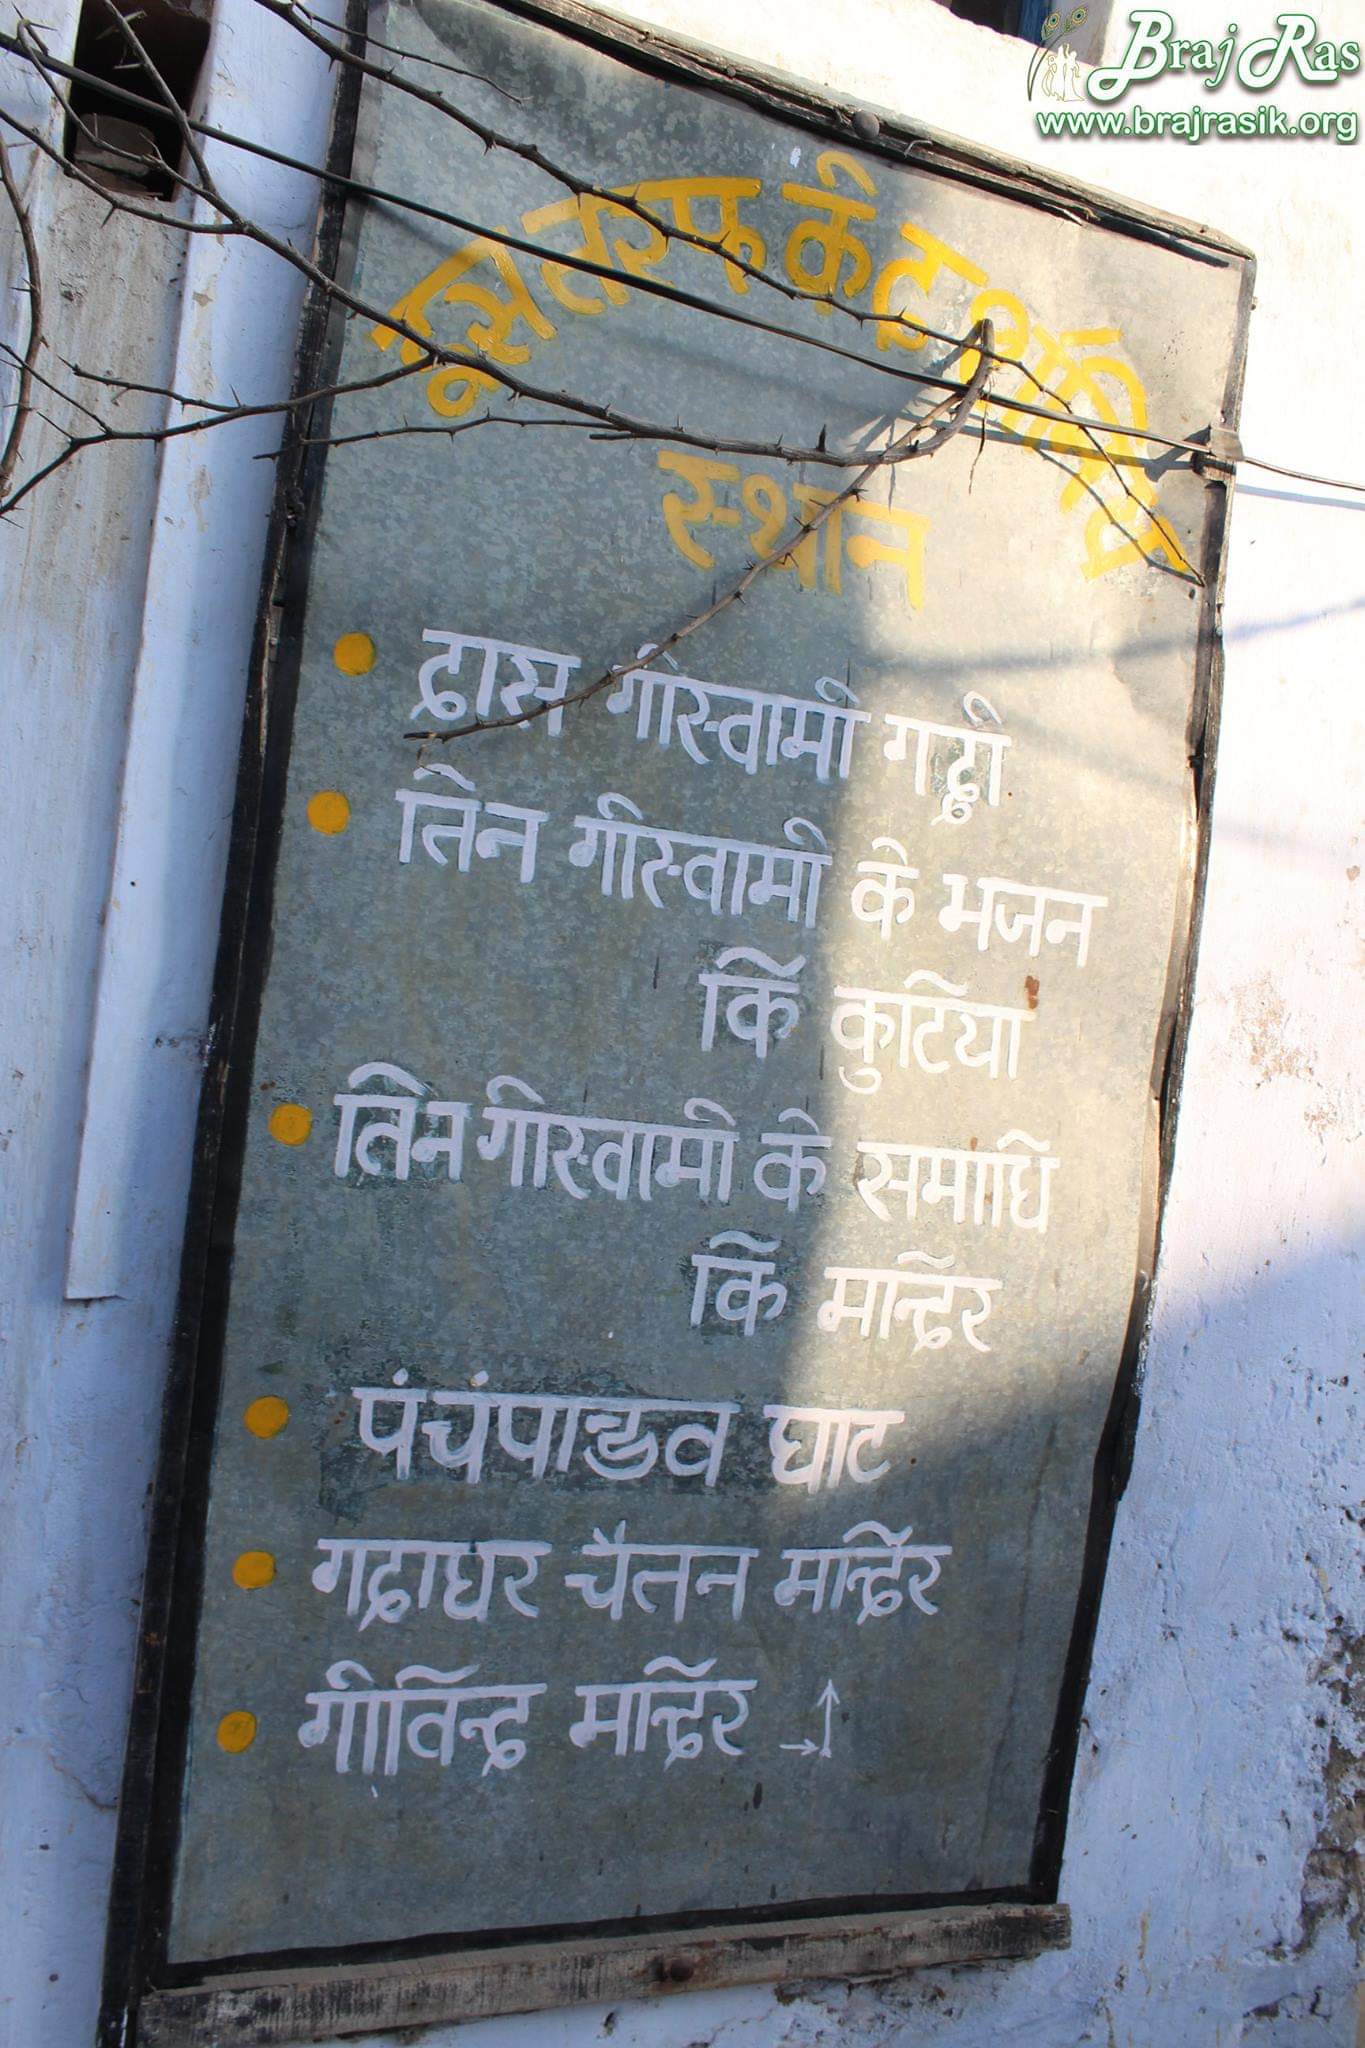 Braj Ras
www.brajrasik.org
दूस तरफ के दर्शनिय
स्थान
दास गोस्वामी गद्दी
तिन गोस्वामी के भजन
कि कुटिया
तिन गोस्वामी के समाधि
कि मन्दिर
पंचंपाण्डव घाट
गदाधर चैतन मन्दिर
गोविन्द मन्दिर